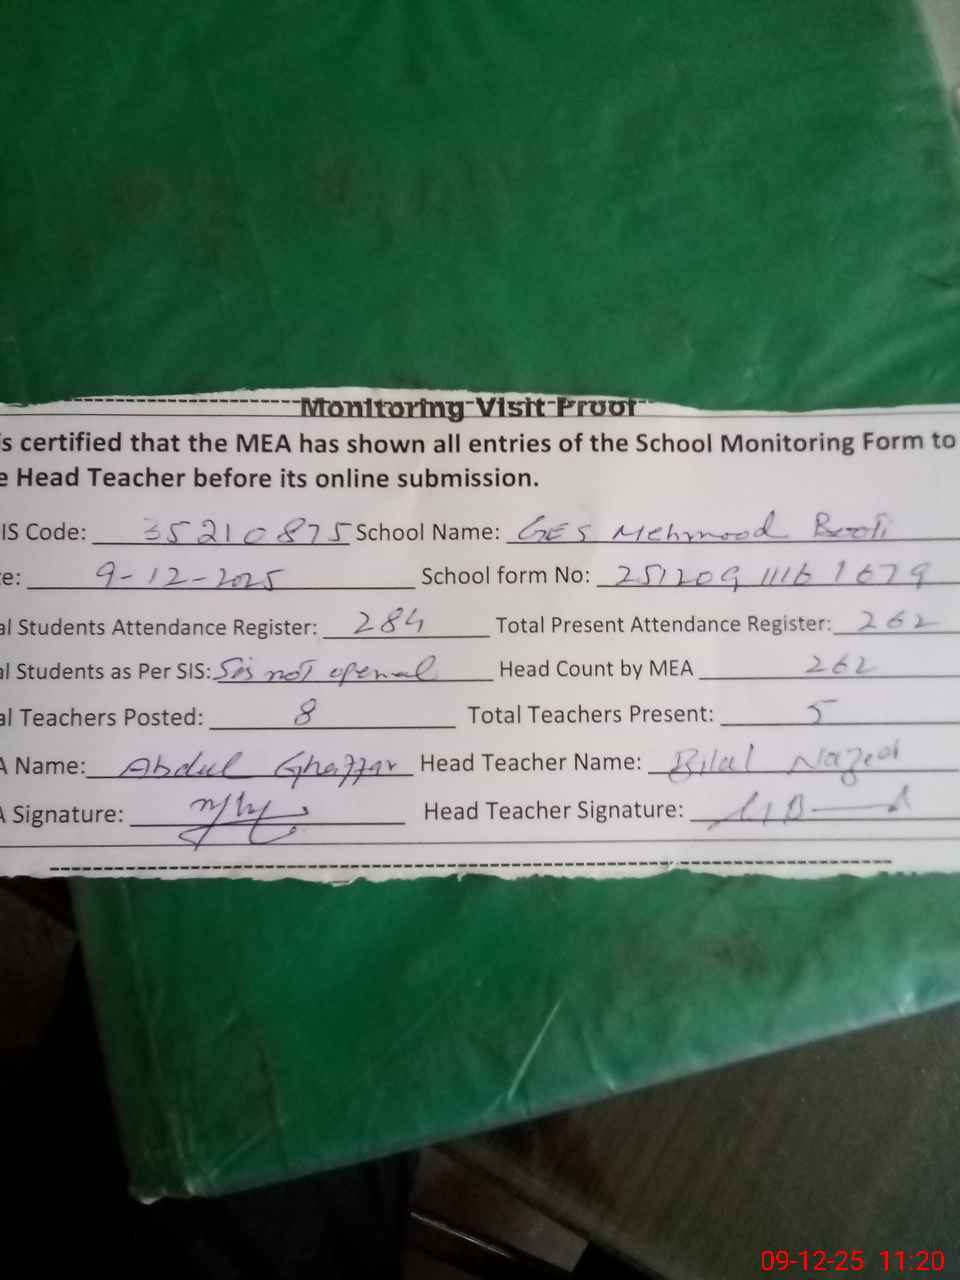 Monitoring Visit Proof
is certified that the MEA has shown all entries of the School Monitoring Form to
e Head Teacher before its online submission.
IS Code: 35210875 School Name: GES Mehmood Booti
e: 9-12-2025 School form No: 25120911161679
al Students Attendance Register: 284 Total Present Attendance Register: 262
al Students as Per SIS: Sis not openal Head Count by MEA 262
al Teachers Posted: 8 Total Teachers Present: 5
A Name: Abdul Ghaffar Head Teacher Name: Bilal
A Signature: Head Teacher Signature:
09-12-25 11:20